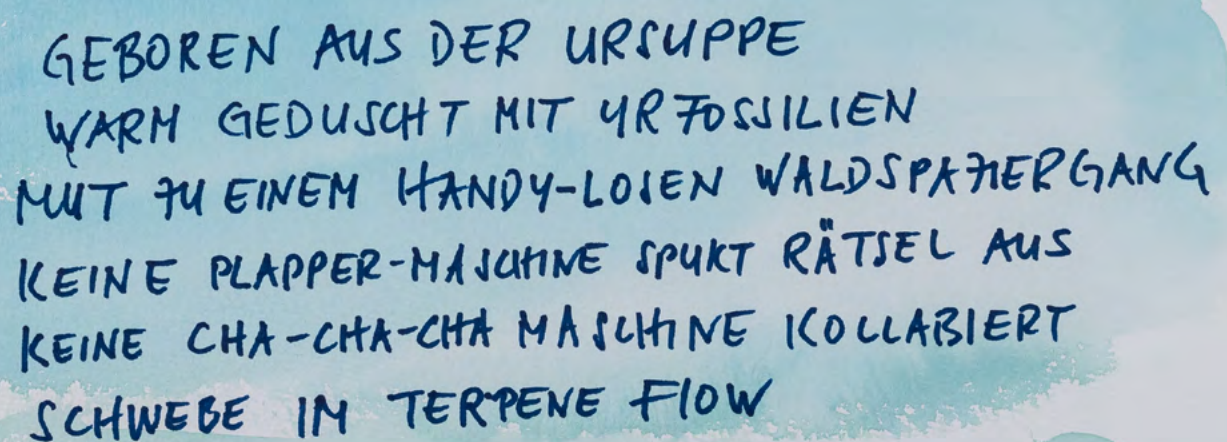 GEBOREN AUS DER URSUPPE
WARM GEDUSCHT MIT URFOSSILIEN
MUT ZU EINEM HANDY-LOSEN WALDSPAZIERGANG
KEINE PLAPPER-MASCHINE SPUKT RÄTSEL AUS
KEINE CHA-CHA-CHA MASCHINE KOLLABIERT
SCHWEBE IM TERPENE FlOW